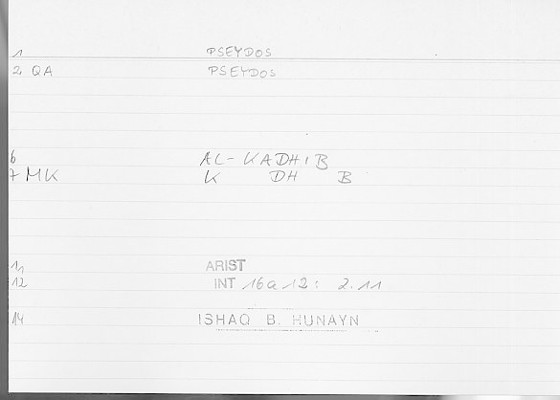 1 PSEYDOS
2, QA PSEYDOS
6 AL-KADHIB
7 MK K DH B
11 ARIST
12 INT 16a 12: 2.11
14 ISHAQ B. HUNAYN